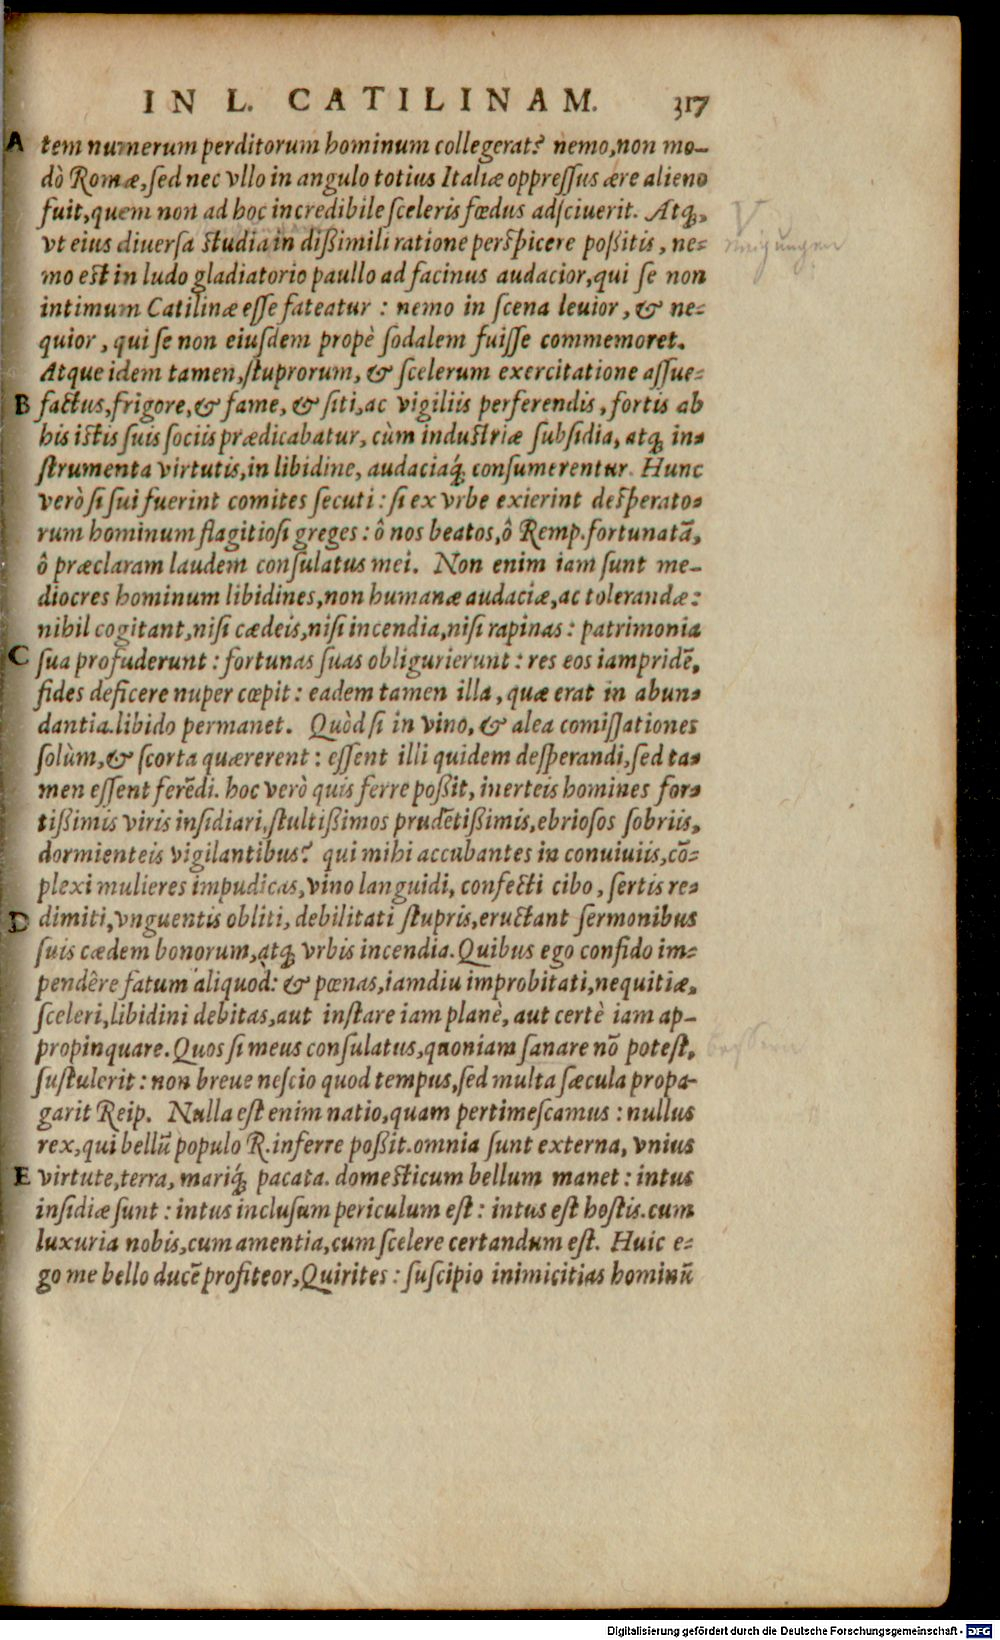 IN L. CATILINAM. 317
A tem numerum perditorum hominum collegerat? nemo, non mo-
dò Romæ, sed nec vllo in angulo totius Italiæ oppressus ære alieno
fuit, quem non ad hoc incredibile sceleris fœdus adsciuerit. Atq;,
vt eius diuersa studia in dißimili ratione perspicere poßitis, ne-
mo est in ludo gladiatorio paullo ad facinus audacior, qui se non
intimum Catilinæ esse fateatur : nemo in scena leuior, & ne-
quior, qui se non eiusdem propè sodalem fuisse commemoret.
Atque idem tamen, stuprorum, & scelerum exercitatione assue-
B factus, frigore, & fame, & siti, ac vigiliis perferendis, fortis ab
his istis suis sociis prædicabatur, cùm industriæ subsidia, atq; in-
strumenta virtutis, in libidine, audaciaq́; consumerentur. Hunc
verò si sui fuerint comites secuti : si ex vrbe exierint desperato-
rum hominum flagitiosi greges : ô nos beatos, ô Remp. fortunatã,
ô præclaram laudem consulatus mei. Non enim iam sunt me-
diocres hominum libidines, non humanæ audaciæ, ac tolerandæ:
nihil cogitant, nisi cædeis, nisi incendia, nisi rapinas : patrimonia
C sua profuderunt : fortunas suas obligurierunt : res eos iampridẽ,
fides deficere nuper cœpit : eadem tamen illa, quæ erat in abun-
dantia. libido permanet. Quòd si in vino, & alea comissationes
solùm, & scorta quærerent : essent illi quidem desperandi, sed ta-
men essent ferẽdi. hoc verò quis ferre poßit, inerteis homines for-
tißimis viris insidiari, stultißimos prudẽtißimis, ebriosos sobriis,
dormienteis vigilantibus? qui mihi accubantes in conuiuiis, cõ-
plexi mulieres impudicas, vino languidi, confecti cibo, sertis re-
D dimiti, vnguentis obliti, debilitati stupris, eructant sermonibus
suis cædem bonorum, atq; vrbis incendia. Quibus ego confido im-
pendêre fatum aliquod: & pœnas, iamdiu improbitati, nequitiæ,
sceleri, libidini debitas, aut instare iam planè, aut certè iam ap-
propinquare. Quos si meus consulatus, quoniam sanare nõ potest,
sustulerit : non breue nescio quod tempus, sed multa sæcula propa-
garit Reip. Nulla est enim natio, quam pertimescamus : nullus
rex, qui bellũ populo R. inferre poßit. omnia sunt externa, vnius
E virtute, terra, mariq́; pacata. domesticum bellum manet : intus
insidiæ sunt : intus inclusum periculum est : intus est hostis. cum
luxuria nobis, cum amentia, cum scelere certandum est. Huic e-
go me bello ducẽ profiteor, Quirites : suscipio inimicitias hominũ
Neigungen
bessern
Digitalisierung gefördert durch die Deutsche Forschungsgemeinschaft - DFG